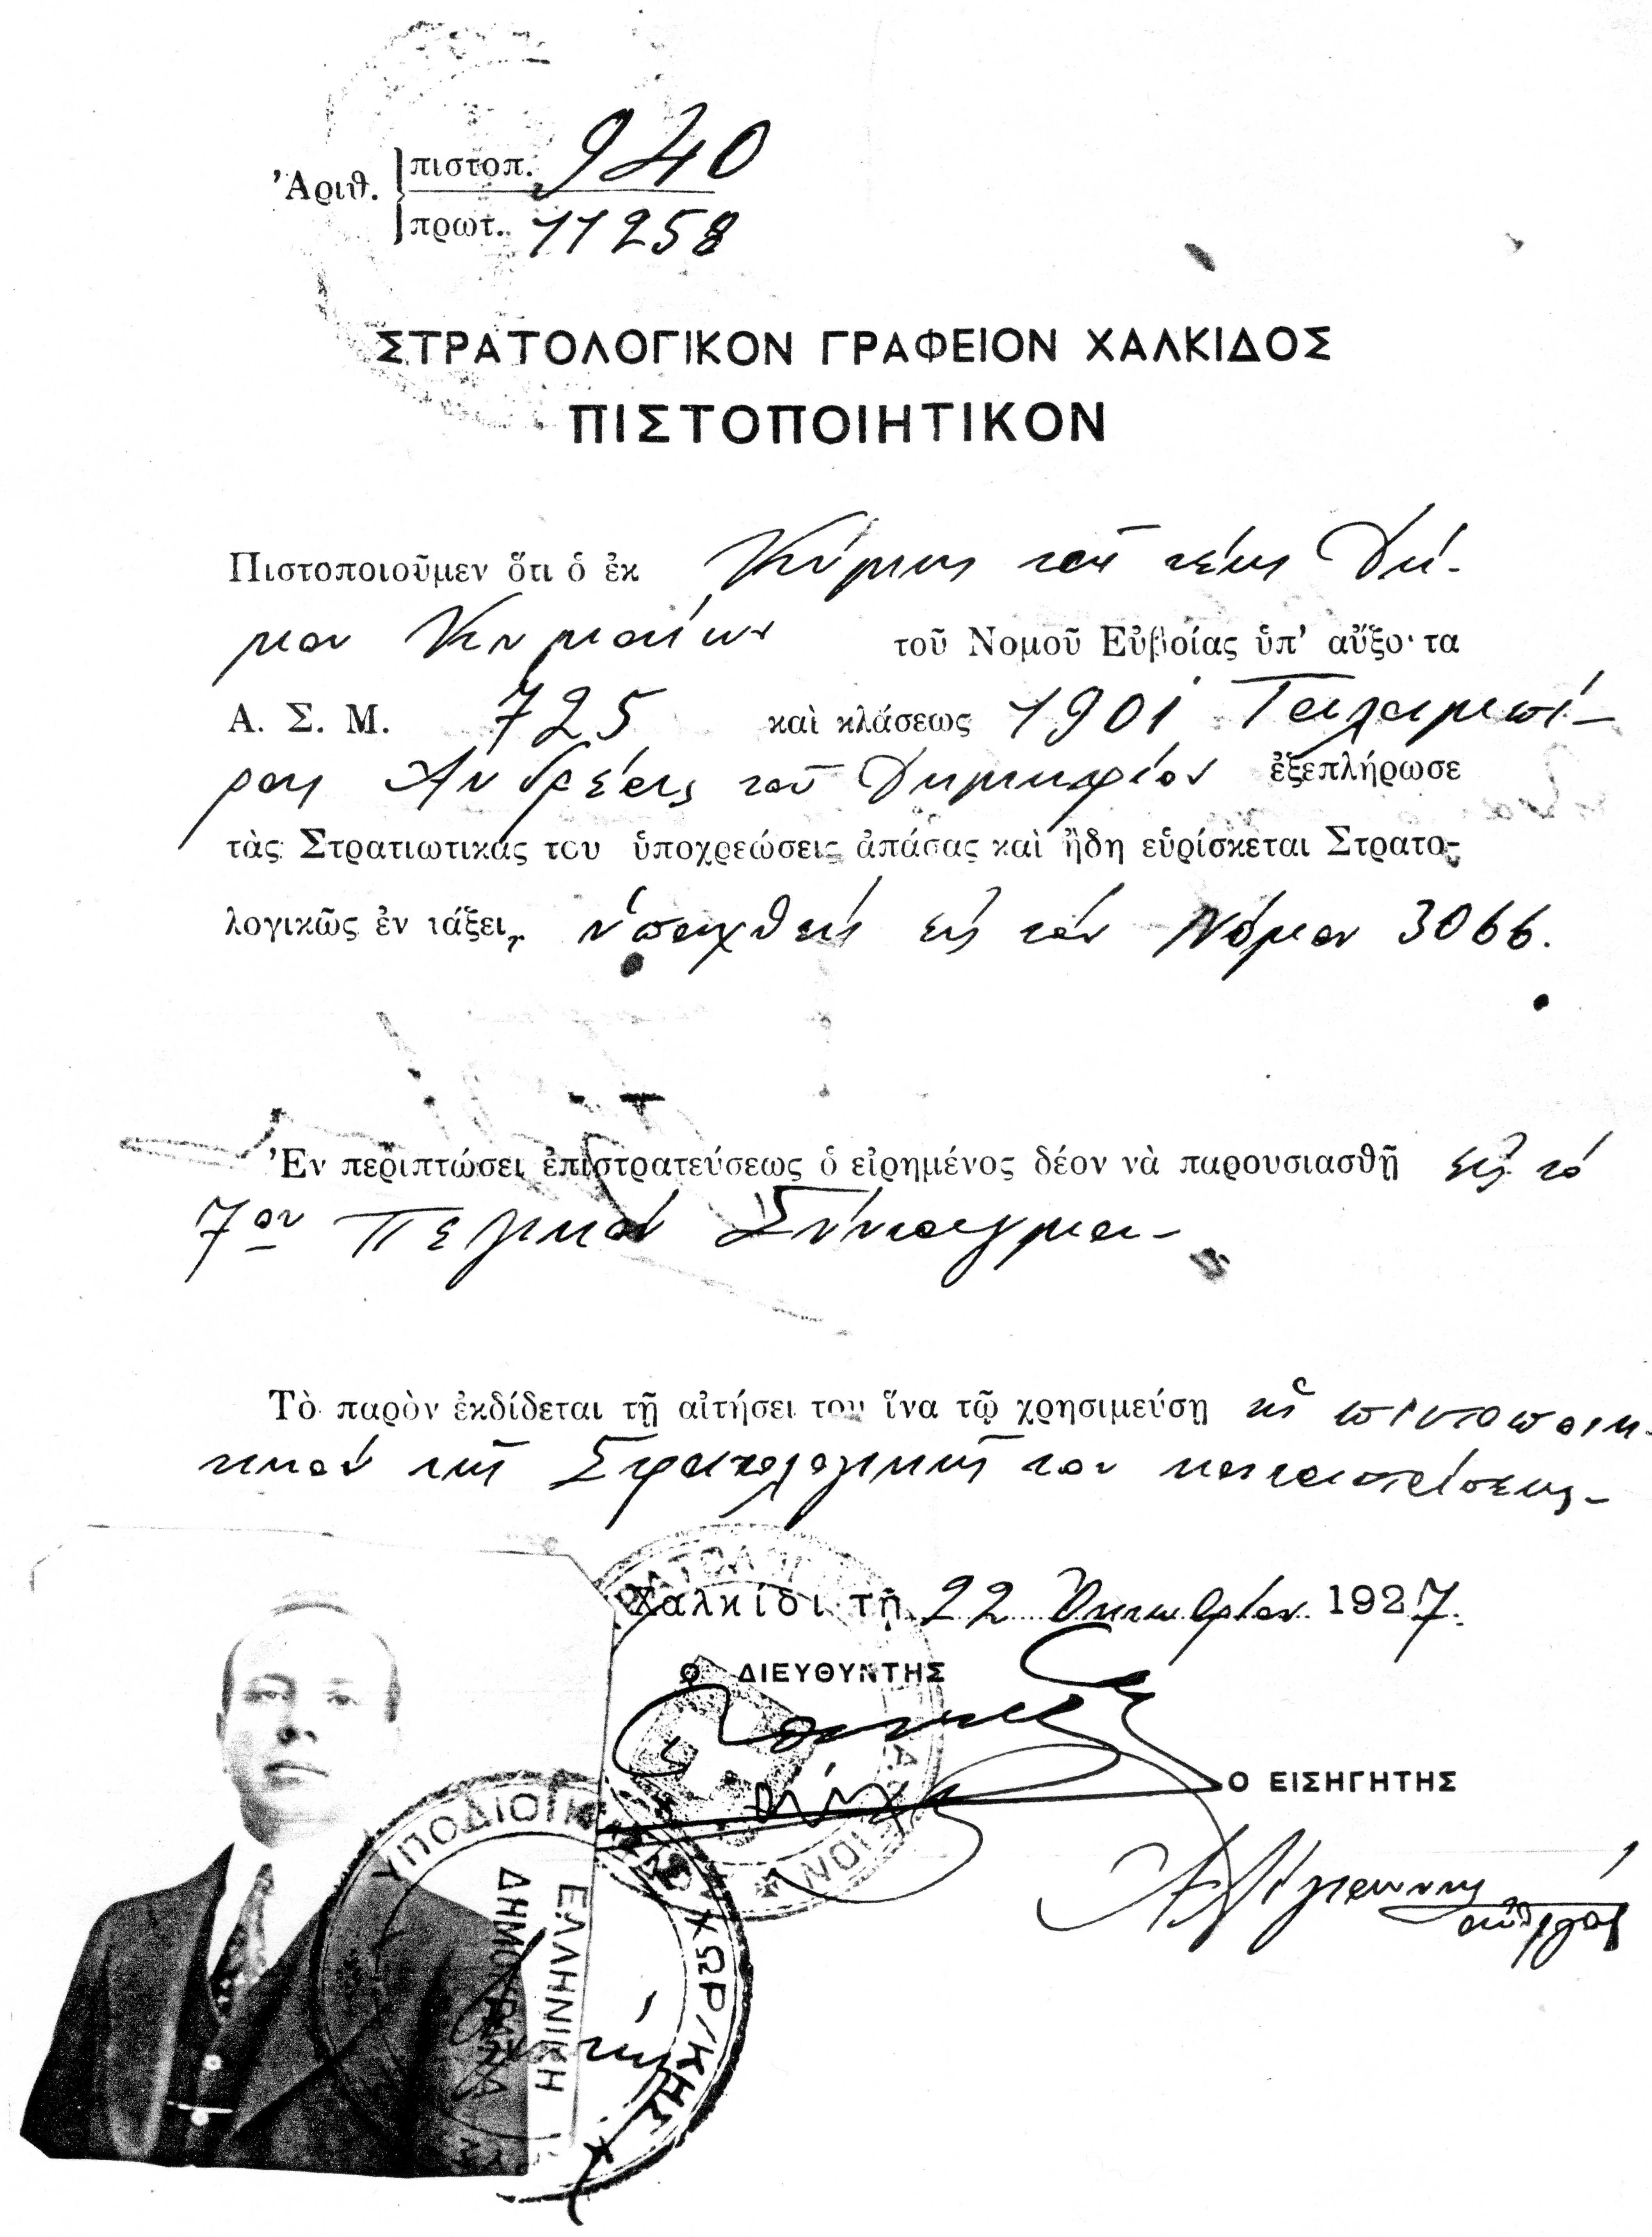 Ἀριθ. πιστοπ. 940
πρωτ. 11258
ΣΤΡΑΤΟΛΟΓΙΚΟΝ ΓΡΑΦΕΙΟΝ ΧΑΛΚΙΔΟΣ
ΠΙΣΤΟΠΟΙΗΤΙΚΟΝ
Πιστοποιοῦμεν ὅτι ὁ ἐκ Κύμης τοῦ τέως Δή-
μου Κυμαίων τοῦ Νομοῦ Εὐβοίας ὑπ' αὔξοντα
Α. Σ. Μ. 725 καὶ κλάσεως 1901
Ἀνδρέας τοῦ ἐξεπλήρωσε
τὰς Στρατιωτικάς του ὑποχρεώσεις ἁπάσας καὶ ἤδη εὑρίσκεται Στρατο-
λογικῶς ἐν τάξει, ὑπαχθείς εἰς τόν Νόμον 3066.
Ἐν περιπτώσει ἐπιστρατεύσεως ὁ εἰρημένος δέον νὰ παρουσιασθῇ εἰς τό
7ον Πεζικόν Σύνταγμα-
Τὸ παρὸν ἐκδίδεται τῇ αἰτήσει του ἵνα τῷ χρησιμεύσῃ ὡς πιστοποιη-
τικόν τῆς Στρατολογικῆς του καταστάσεως-
Χαλκίδι τῇ 22 Ὀκτωβρίου 1927.
Ο ΔΙΕΥΘΥΝΤΗΣ
Ο ΕΙΣΗΓΗΤΗΣ
ΧΩΡ/ΚΗΣ
ΕΛΛΗΝΙΚΗ
ΔΗΜΟΚΡΑΤΙΑ